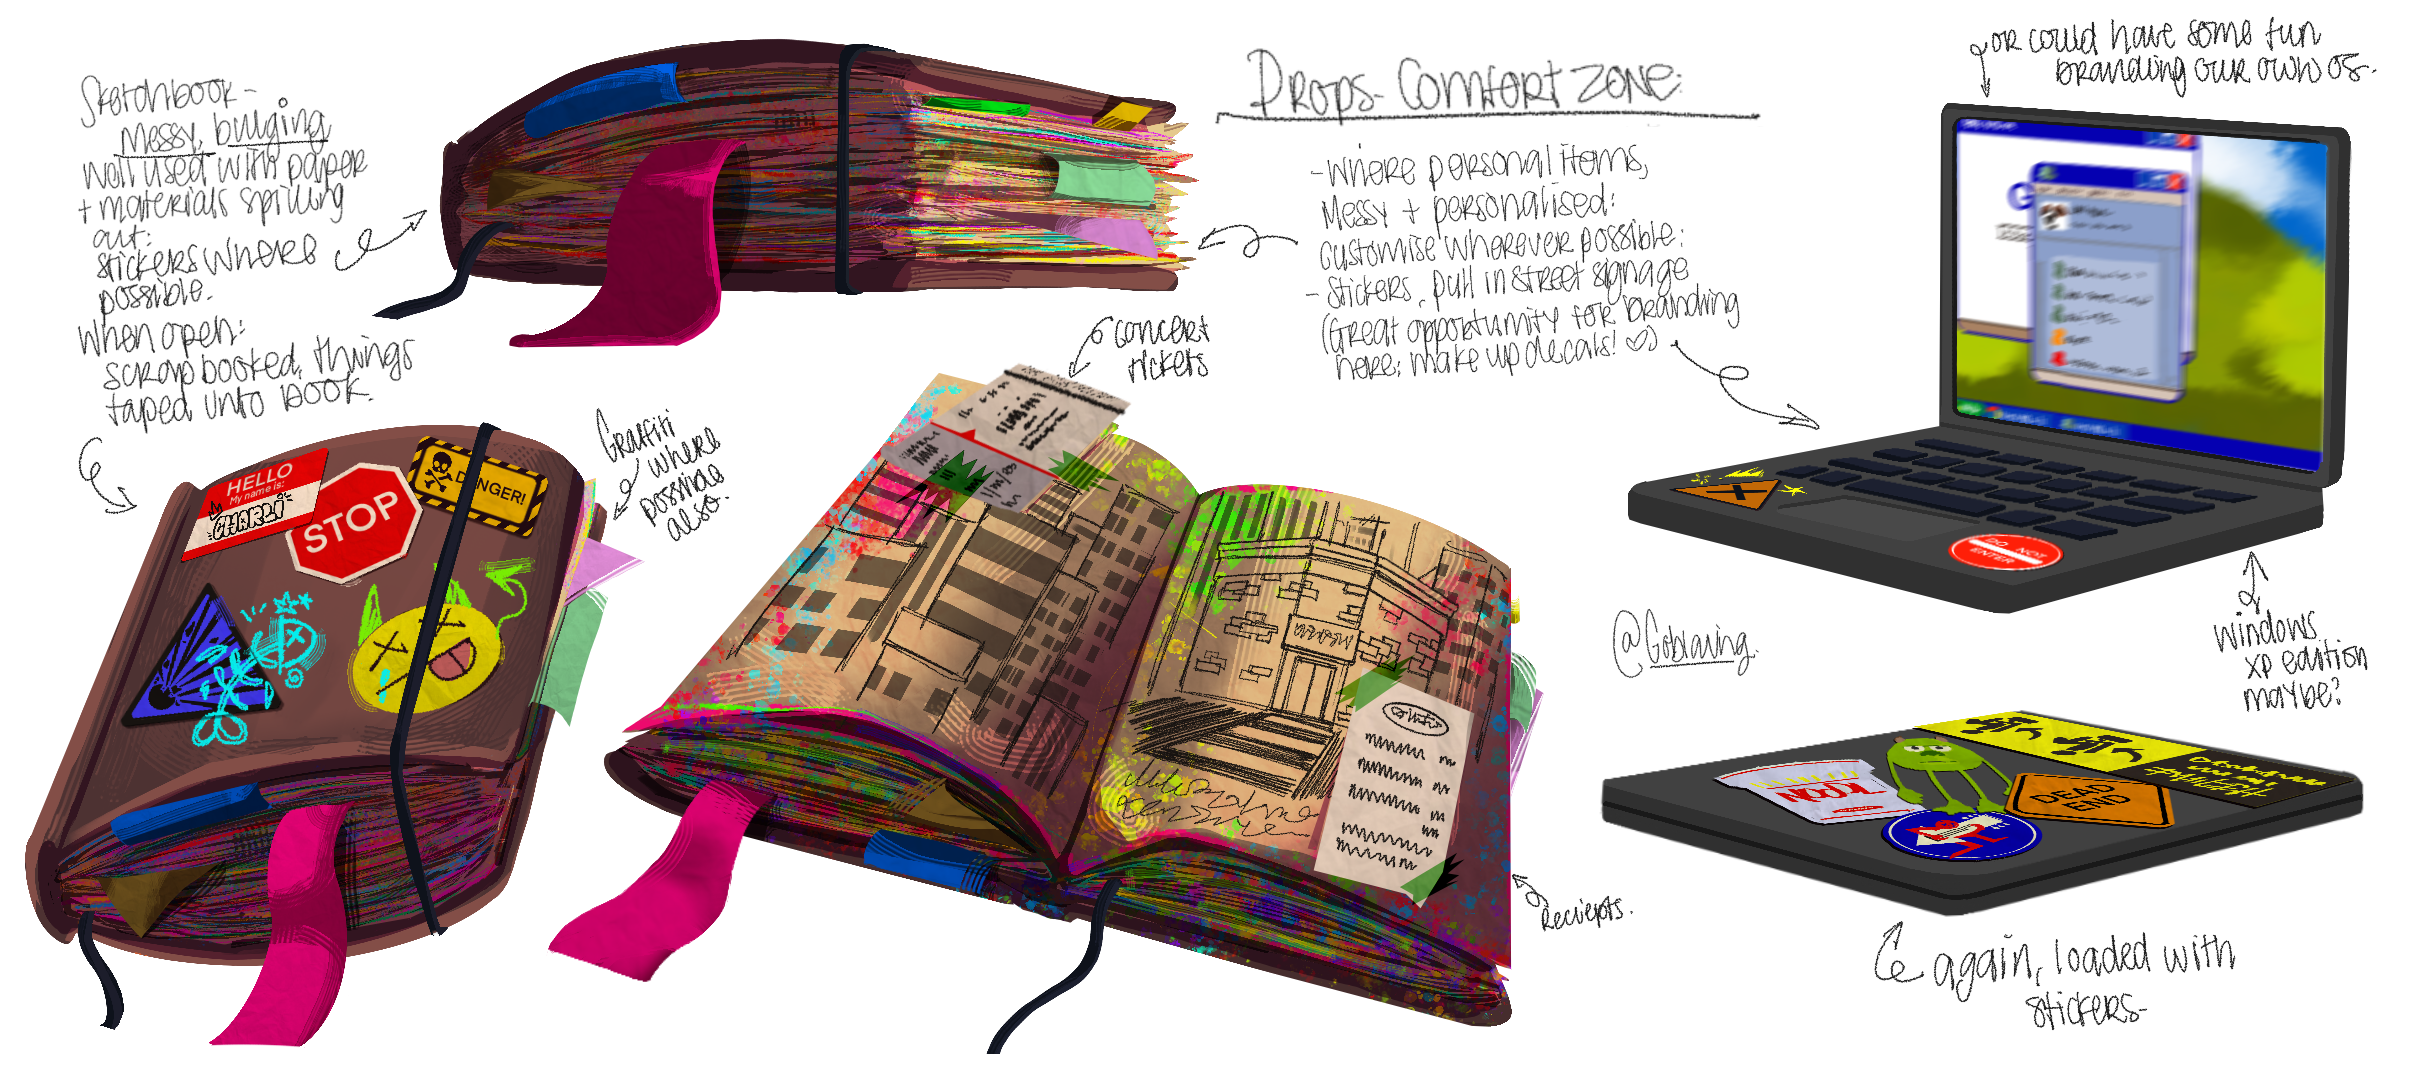 Sketchbook -
Messy, bulging
well used with paper
+ materials spilling
out:
stickers where
possible.
when open:
scrapbooked, things
taped unto book.
Props - Comfort zone:
- where personal items,
Messy + personalised:
customise wherever possible:
- stickers, pull in street signage
(Great opportunity for branding
here; make up decals! ♡)
or could have some fun
branding our own OS.
concert
tickets
Graffiti
where
possible
also.
HELLO
My name is:
CHARLI
STOP
DANGER!
DO NOT
ENTER
@Goblaving.
windows
xp edition
maybe?
ICON
DEAD
END
Reciepts.
again, loaded with
stickers-